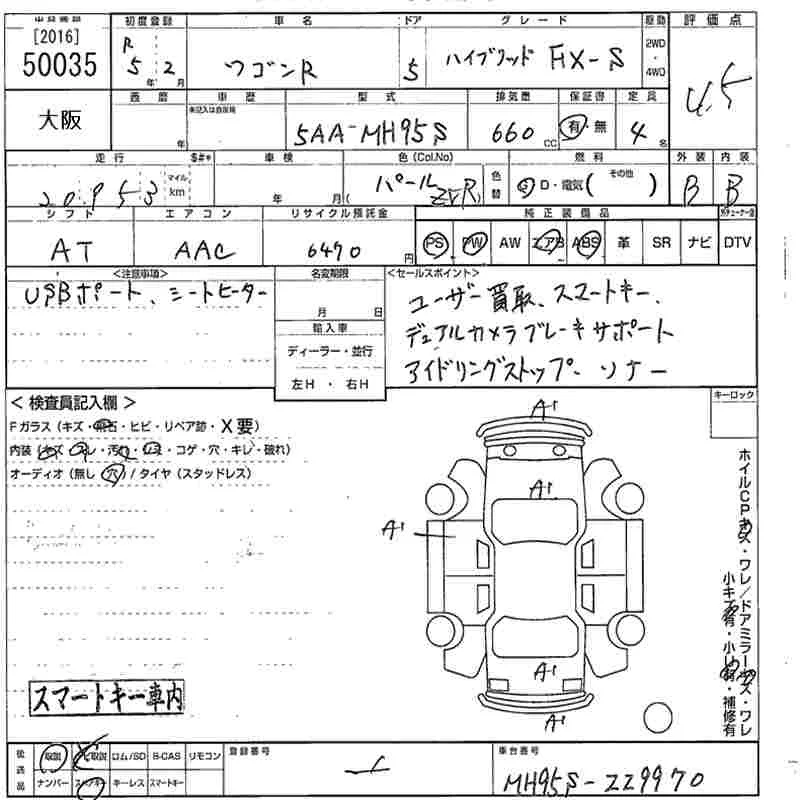 [2016]
50035
大阪
初度登録
R
5 年 2 月
車名
ワゴンR
ドア
5
グレード
ハイブリッド HX-S
駆動
2WD
・
4WD
評価点
4.5
年
車歴
未記入は自家用
型式
5AA-MH95S
排気量
660 CC
保証書
有・無
定員
4 名
走行
$#*
20953
マイル
km
車検
年 月
色 (Col.No)
パール
(ZVR)
色替
燃料
G D・電気 ( その他 )
外装
B
内装
B
シフト
AT
エアコン
AAC
リサイクル預託金
6470 円
純正装備品
PS PW AW エアB ABS 革 SR ナビ DTV
<注意事項>
USBポート、シートヒーター
名変期限
月 日
輸入車
ディーラー・並行
左H・右H
<セールスポイント>
ユーザー買取、スマートキー、
デュアルカメラブレーキサポート
アイドリングストップ、ソナー
キーロック
< 検査員記入欄 >
Fガラス (キズ・飛石・ヒビ・リペア跡・X要)
内装 (キズ・スレ・汚れ・シミ・コゲ・穴・キレ・破れ)
オーディオ (無し 穴) / タイヤ (スタッドレス)
A1
A1
A1
A1
A1
ホイルCPキズ・ワレ/ドアミラーキズ・ワレ
小キズ有・小凹有・補修有
スマートキー車内
後送品
取説 ナビ取説 ロム/SD B-CAS リモコン
ナンバー スペアキー キーレス スマートキー
登録番号
車台番号
MH95S-229970